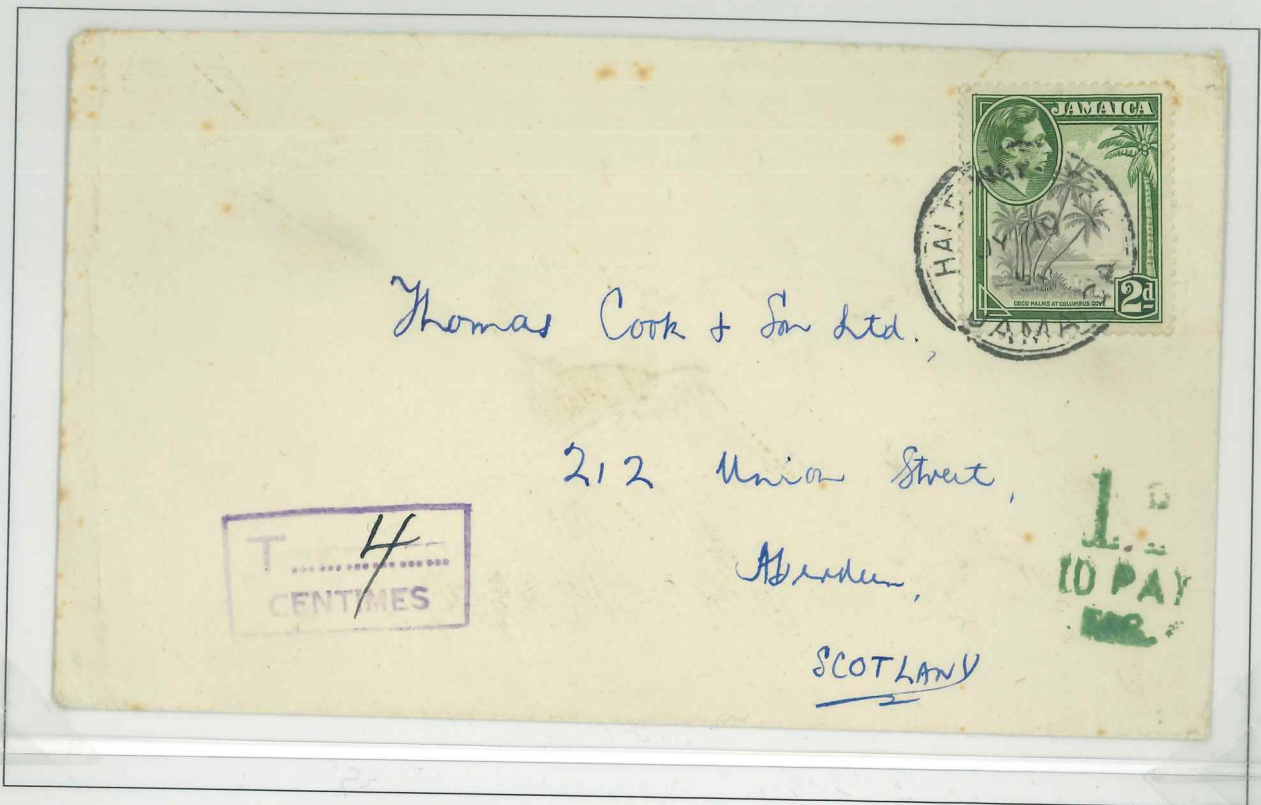 JAMAICA
COCO PALMS AT COLUMBUS COVE
2d
Thomas Cook & Son Ltd.,
212 Union Street,
Aberdeen,
SCOTLAND
T 4
CENTIMES
1D
TO PAY